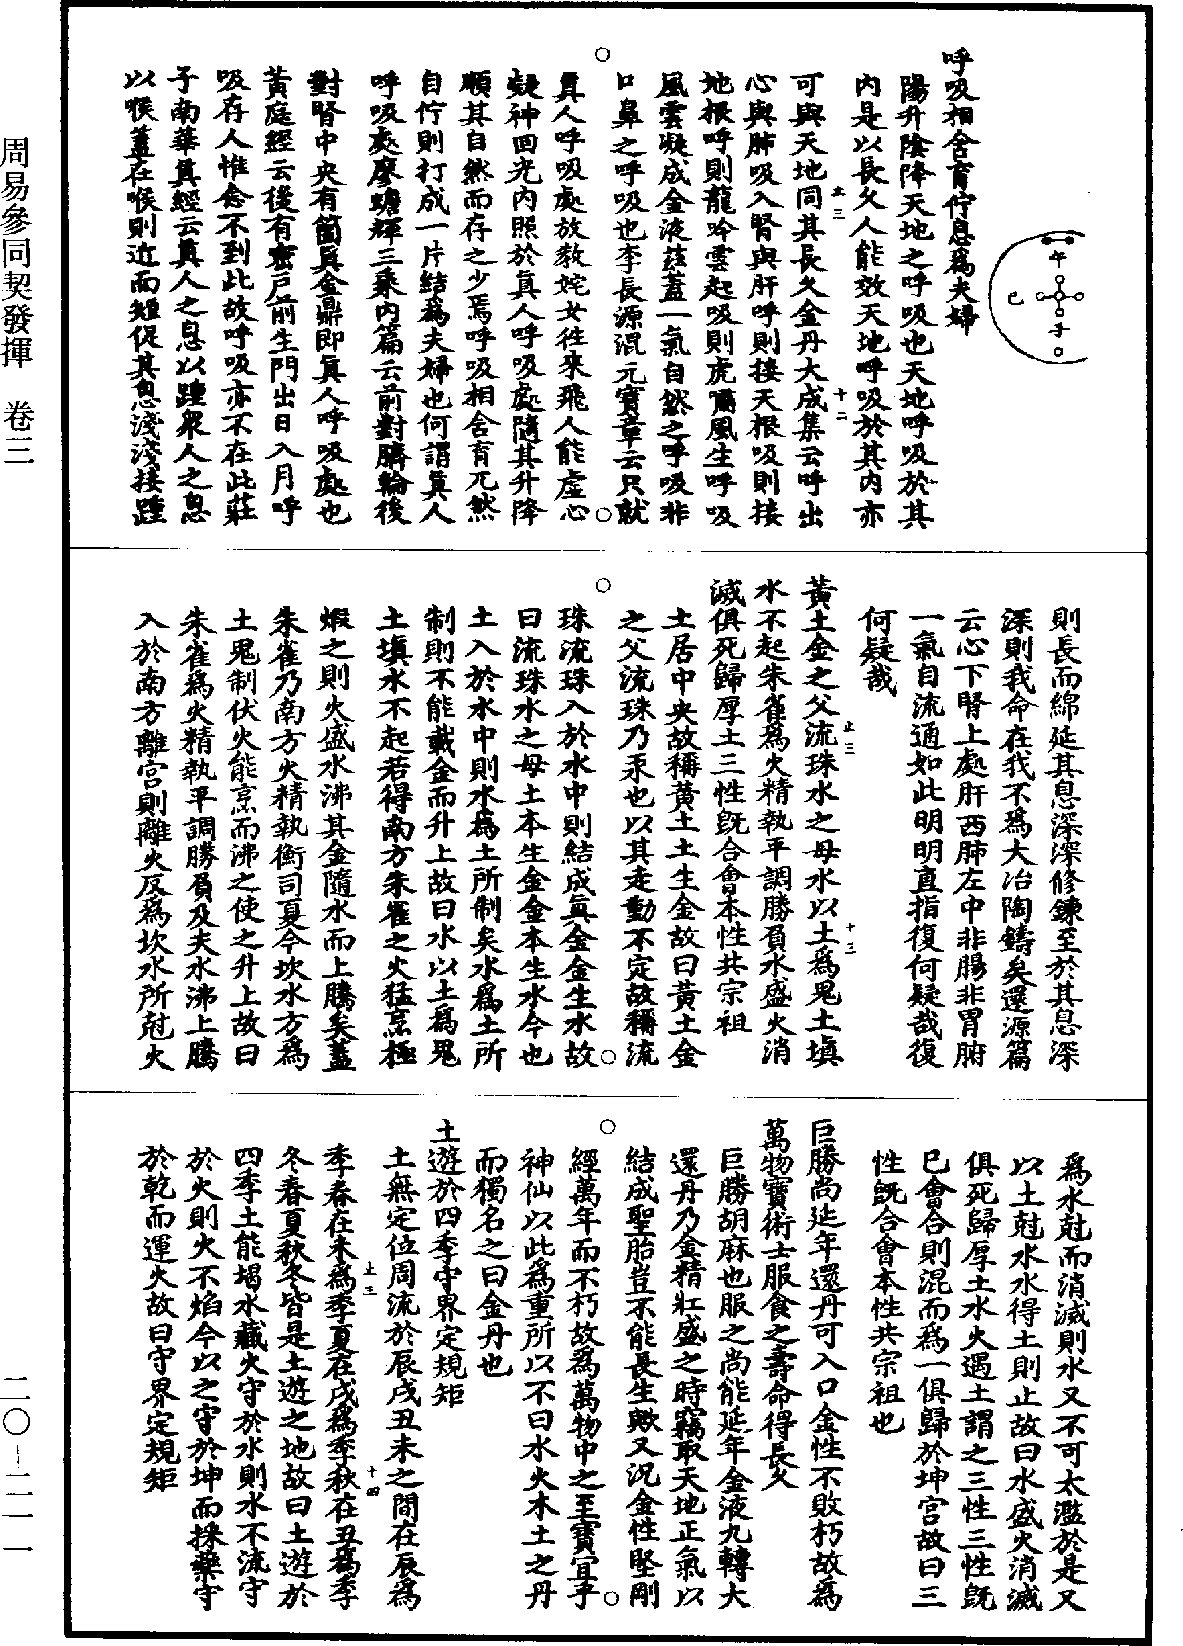 周易參同契發揮　卷三
午
巳
子
呼吸相含育佇息爲夫婦
陽升陰降天地之呼吸也天地呼吸於其
內是以長久人能效天地呼吸於其內亦
可與天地同其長久金丹大成集云呼出
心與肺吸入腎與肝呼則接天根吸則接
地根呼則龍吟雲起吸則虎嘯風生呼吸
風雲凝成金液茲蓋一氣自然之呼吸非
口鼻之呼吸也李長源混元寶章云只就
眞人呼吸處放教姹女往來飛人能虛心
凝神回光內照於真人呼吸處隨其升降
順其自然而存之少焉呼吸相含育兀然
自佇則打成一片結爲夫婦也何謂眞人
呼吸處廖蟾輝三乘內篇云前對臍輪後
對腎中央有箇眞金鼎即眞人呼吸處也
黃庭經云後有密戶前生門出日入月呼
吸存人惟念不到此故呼吸亦不在此莊
子南華眞經云眞人之息以踵衆人之息
以喉蓋在喉則近而短促其息淺淺接踵
止三
十二
則長而綿延其息深深修鍊至於其息深
深則我命在我不爲大冶陶鑄矣還源篇
云心下腎上處肝西肺左中非腸非胃腑
一氣自流通如此明明直指復何疑哉復
何疑哉
黃土金之父流珠水之母水以土爲鬼土塡
水不起朱雀爲火精執平調勝負水盛火消
滅俱死歸厚土三性旣合會本性共宗祖
土居中央故稱黃土土生金故曰黃土金
之父流珠乃汞也以其走動不定故稱流
珠流珠入於水中則結成眞金金生水故
曰流珠水之母土本生金金本生水今也
土入於水中則水爲土所制矣水爲土所
制則不能載金而升上故曰水以土爲鬼
土塡水不起若得南方朱雀之火猛烹極
煅之則火盛水沸其金隨水而上騰矣蓋
朱雀乃南方火精執衡司夏今坎水方爲
土鬼制伏火能烹而沸之使之升上故曰
朱雀爲火精執平調勝負及夫水沸上騰
入於南方離宮則離火反爲坎水所尅火
止三
十三
爲水尅而消滅則水又不可太濫於是又
以土尅水水得土則止故曰水盛火消滅
俱死歸厚土水火遇土謂之三性三性旣
已會合則混而爲一俱歸於坤宮故曰三
性旣合會本性共宗祖也
巨勝尚延年還丹可入口金性不敗朽故爲
萬物寶術士服食之壽命得長久
巨勝胡麻也服之尚能延年金液九轉大
還丹乃金精壯盛之時竊取天地正氣以
結成聖胎豈不能長生歟又況金性堅剛
經萬年而不朽故爲萬物中之至寶宜乎
神仙以此爲重所以不曰水火木土之丹
而獨名之曰金丹也
土遊於四季守界定規矩
土無定位周流於辰戌丑未之間在辰爲
季春在未爲季夏在戌爲季秋在丑爲季
冬春夏秋冬皆是土遊之地故曰土遊於
四季土能堨水藏火守於水則水不流守
於火則火不焰今以之守於坤而採藥守
於乾而運火故曰守界定規矩
止三
十四
二〇-二一一